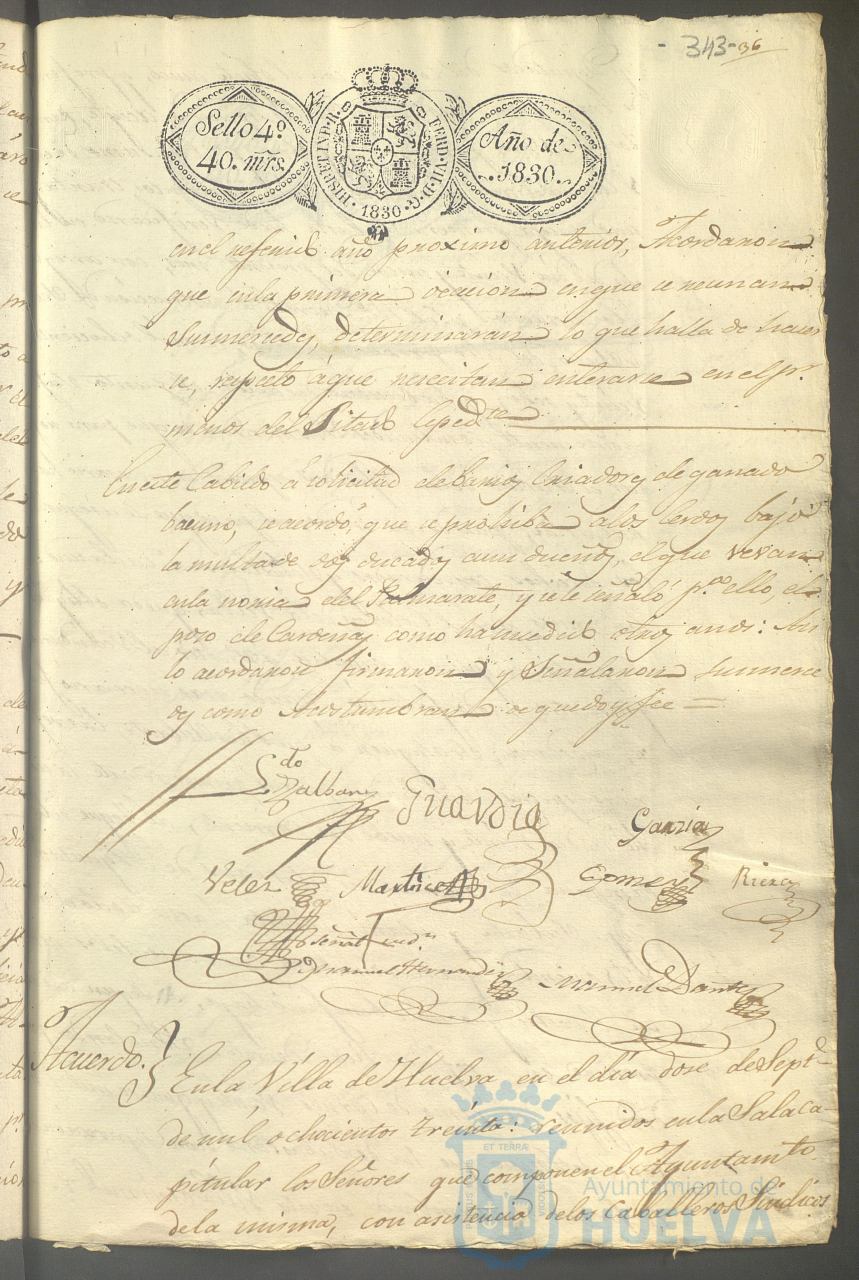 - 343 - 36
Sello 4º
40. mrs.
HISP. ET IND. R. FERD. VII. D. G.
1830
Año de
1830.
en el referido año proximo ánterior, Acordaron
que en la primera ocacion en que se reunan
sus mercedes, determinarán lo que halla de hacer
se, respeto á que necesitan enterarse en el por
menor del citado Expedte
En este Cabildo á solicitud de barios Criadores de ganado
bacuno, se acordó, que se prohiba a los Cerdos bajo
la multa de dos ducados a su dueño, el que vevan
en la noria del Palmarate, y se le señaló pª ello, el
poso de Cardeñas como ha sucedido otros anos: Asi
lo acordaron firmaron y Señalaron sus merce
des como Acostumbran de que doy fee =
Ldo
Zalban
Guardia
Garzia
Velez
Martinez
Gomez
Riera
señal
Manuel Hernandez
Manuel Dante
Acuerdo.
En la Villa de Huelva en el día dose de Septe
de mil ochocientos treinta: reunidos en la Sala ca-
pitular los Señores que componen el Ayuntamto
de la misma, con asistencia de los Caballeros Sindicos
ET TERRÆ
CUSTODIA
Ayuntamiento de
HUELVA